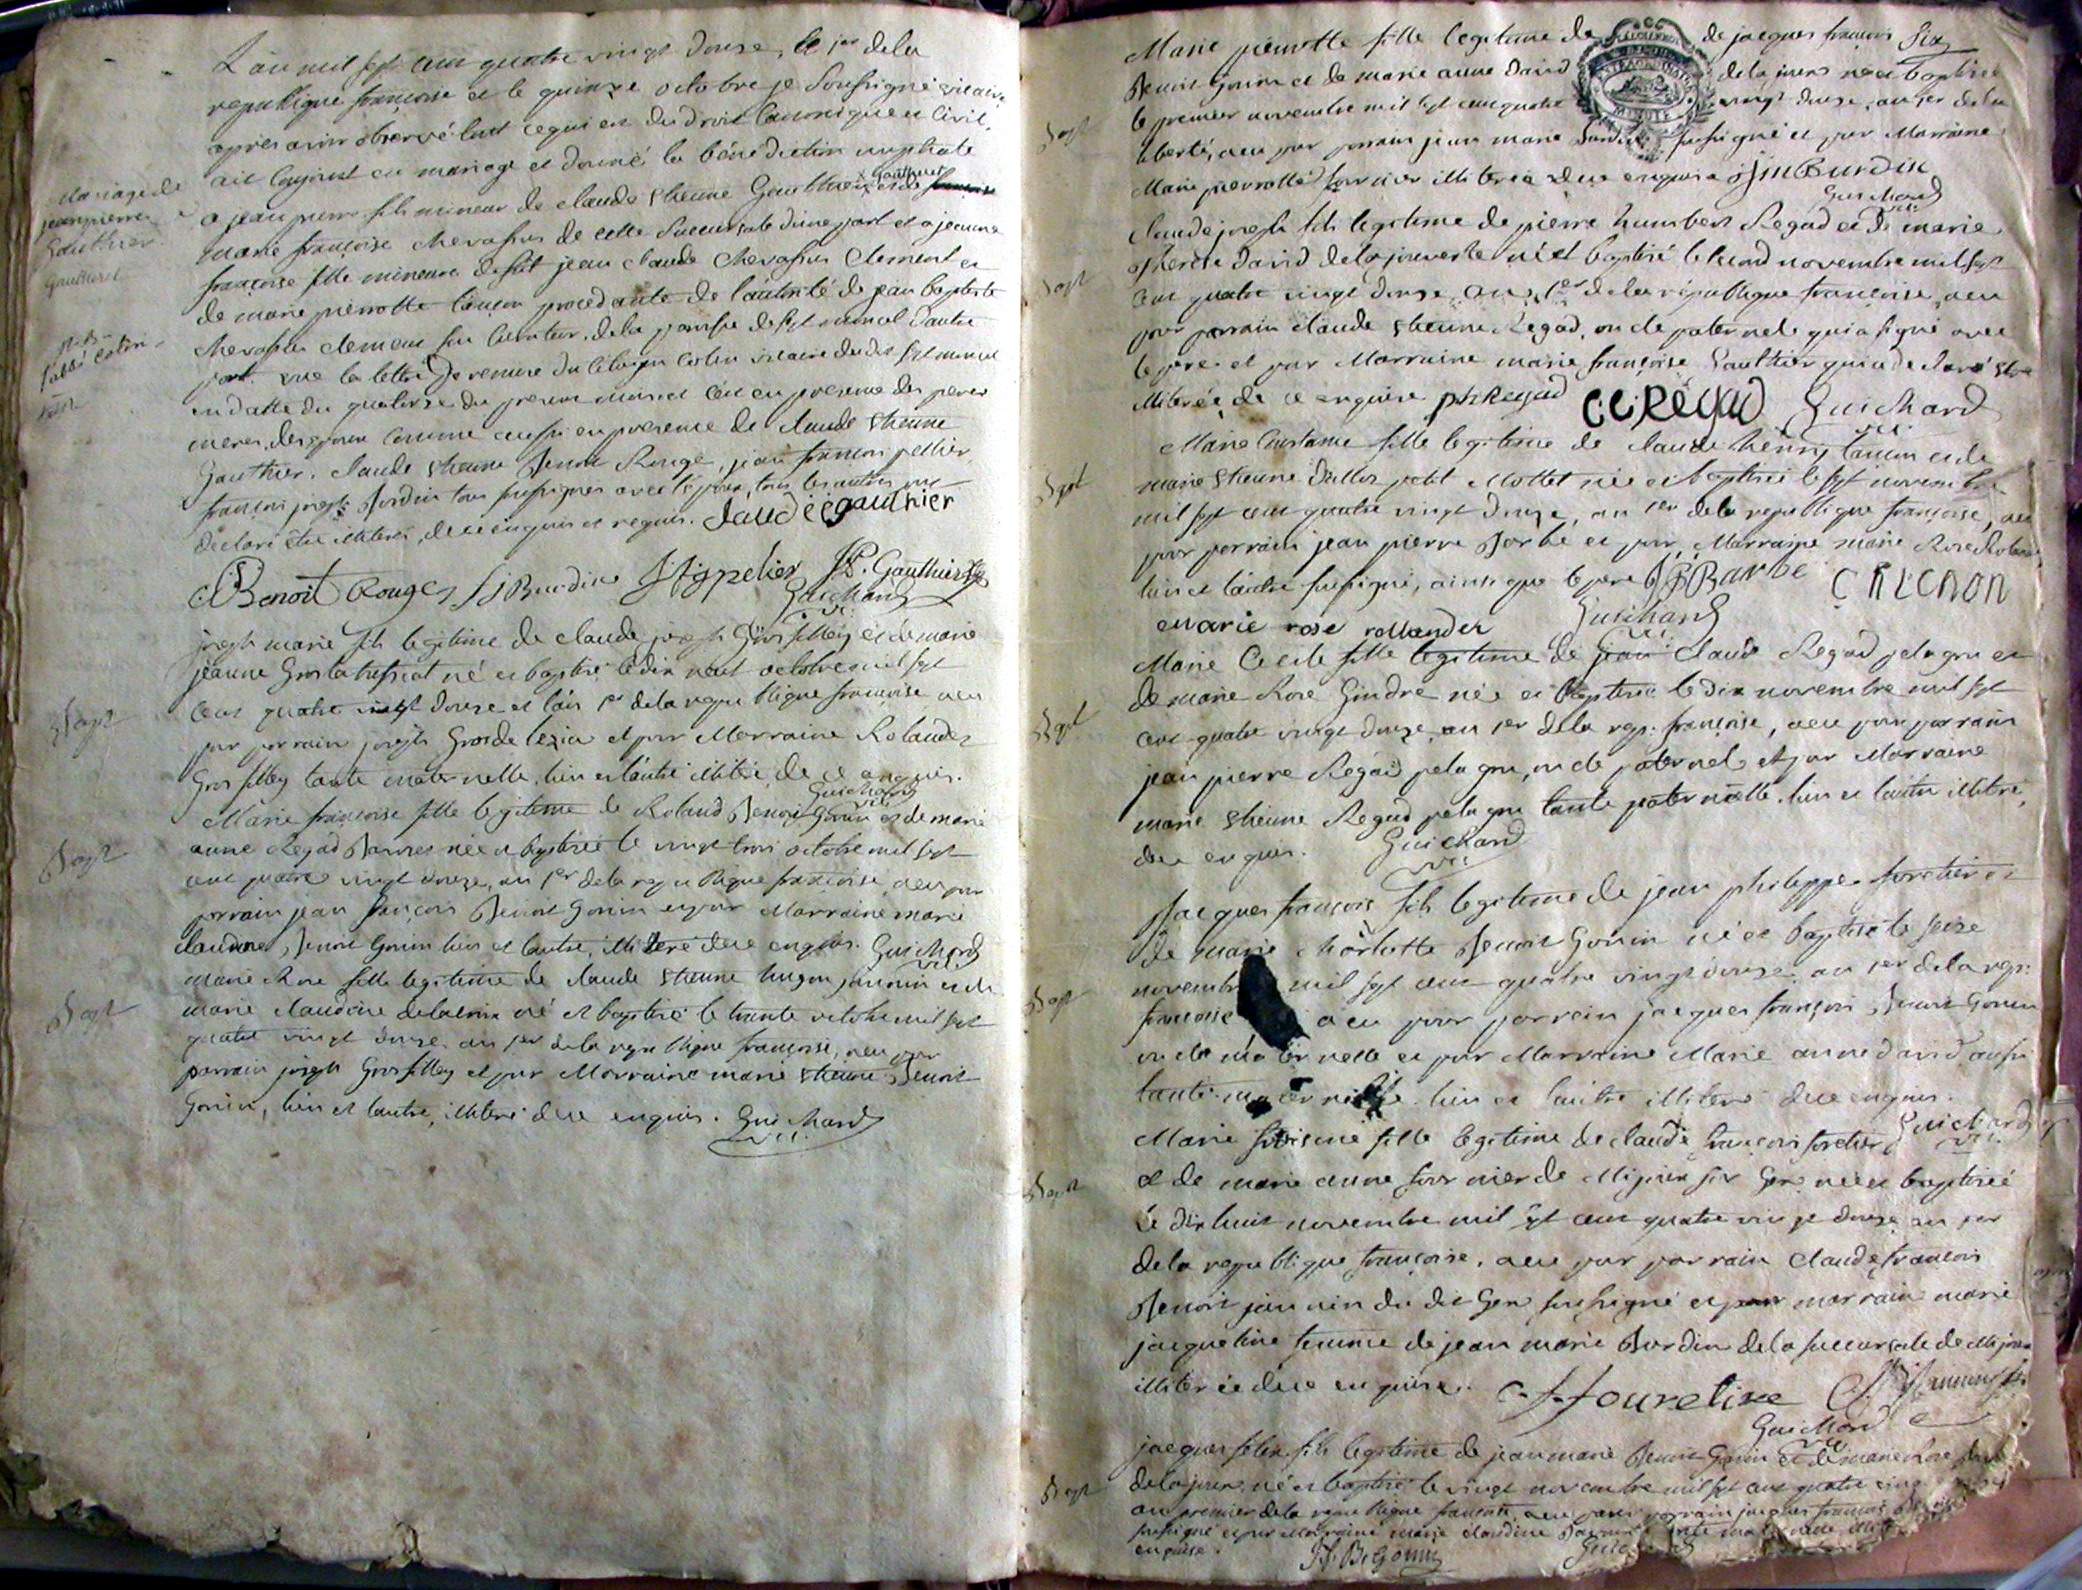 L'an mil sept cent quatre vingt douze, le 1er de la
republique françoise et le quinze octobre je soussigné vicaire
après avoir observé tout ce qui est du droit canonique et civil,
ait conjoint en mariage et donné la bénédiction nuptiale
mariage de
jean pierre
Gauthier
a jean pierre fils mineur de claude Etienne Gauthier, et de
Gauthier
marie françoise chevassus de cette succursale d'une part et a jeanne
françoise fille mineure de fut jean claude chevassus clement et
de marie pierrotte lançon procedante de l'autorité de jean baptiste
chevassus clement son curateur, de la paroisse de spt d'autre
part. vue la lettre de remise du citoyen Colin vicaire du dit
N.B.
l'abbé Colin
en datte du quatorze du present mois et c'est en presence des peres
meres, des epoux comme aussi en presence de claude Etienne
Gauthier, claude Etienne Benoit Rouge, jean françois pellier
françois joseph Burdin tous soussignés avec l'epoux, tous les autres ont
declaré être illiteré, de ce enquis et requis. claude e gauthier
C E Benoit Rouge f j Burdin J f pelier J P. Gauthier
Guichard
vic.
joseph marie fils legitime de claude joseph Grosfilley et de marie
jeanne Gros la tussiat né et baptisé le dix neuf octobre mil sept
Bapt
cent quatre vingt douze et l'an 1er de la republique françoise a eu
pour parrain joseph Grosdelezia et pour Marraine Rolande
Gros filley tante maternelle, l'un et l'autre illiteré de ce enquis.
Guichard
vic
Marie françoise fille legitime de Roland Benoit Gonin et de marie
Bapt
anne Regad née et baptisée le vingt trois octobre mil sept
cent quatre vingt douze, an 1er de la republique françoise, a eu pour
parrain jean françois Benoit Gonin et pour Marraine marie
claudine Benoit Gonin l'un et l'autre, illiteré de ce enquis. Guichard
vic
Marie Rose fille legitime de claude Etienne hugon jeannin et de
Bapt
marie claudine delacroix né et baptisé le trente octobre mil sept
quatre vingt douze, an 1er de la republique françoise, a eu pour
parrain joseph Grosfilley et pour Marraine marie Etienne Benoit
Gonin, l'un et l'autre, illiteré de ce enquis. Guichard
vic.
Marie pierrotte fille legitime de de jacques françois
Benoit Gonin et de marie anne David de la joux née et baptisée
Bapt
le premier novembre mil sept cent quatre vingt douze, an 1er de la
liberté, a eu pour parrain jean marie Burdin soussigné et pour Marraine
Marie pierrotte fournier illiterée de ce enquise JM Burdin
Guichard
vic
Claude joseph fils legitime de pierre humbert Regad et de marie
Bapt
Therese David de la joux verte né et baptisé le second novembre mil sept
cent quatre vingt douze, an 1er de la republique françoise, a eu
pour parrain claude Etienne Regad, oncle paternel qui a signé avec
le pere et pour Marraine marie françoise Gauthier qui a declaré être
illiterée de ce enquise ph Regad C E Regad Guichard
vic.
Marie Constance fille legitime de claude henry lançon et de
Bapt
marie Etienne Dalloz petit Mottet née et baptisée le sept novembre
mil sept cent quatre vingt douze, an 1er de la republique françoise, a eu
pour parrain jean pierre Barbe et pour Marraine marie Rose Rolandez
l'un et l'autre soussigné, ainsi que le pere J P Barbe C h lenon
marie rose rollandez Guichard
vic.
Marie Cecile fille legitime de jean claude Regad pelagru et
de marie Rose Gindre née et baptisée le dix novembre mil sept
Bapt
cent quatre vingt douze, an 1er de la rep. françoise, a eu pour parrain
jean pierre Regad pelagru, oncle paternel et pour Marraine
marie Etienne Regad pelagru tante paternelle. l'un et l'autre illiteré,
de ce enquis. Guichard
vic
Jacques françois fils legitime de jean philippe foretier et
de marie charlotte Benoit Gonin né et baptisé le seize
Bapt
novembre mil sept cent quatre vingt douze an 1er de la rep:
françoise a eu pour parrain jacques françois Benoit Gonin
oncle maternelle et pour Marraine Marie anne david aussi
tante maternelle. l'un et l'autre illiteré de ce enquis.
Guichard
vic.
Marie fille legitime de claude françois foretier
Bapt
et de marie anne fournier de Mijoux sur Gex née et baptisée
le dix huit novembre mil sept cent quatre vingt douze an 1er
de la republique françoise, a eu pour parrain claude françois
Benoit jeannin du dit Gex soussigné et pour marraine marie
jacqueline femme de jean marie Burdin de la succursale de Mijoux
illiterée de ce enquise. C f fouretier
Guichard
vic
jacques felix fils legitime de jean marie Benoit Gonin et de marie Rose
Bapt
de la joux, né et baptisé le vingt novembre mil sept cent quatre vingt
an premier de la republique françoise, a eu pour parrain jacques françois
soussigné et pour Marraine marie claudine
enquise. J f. B. Gonin Guichard